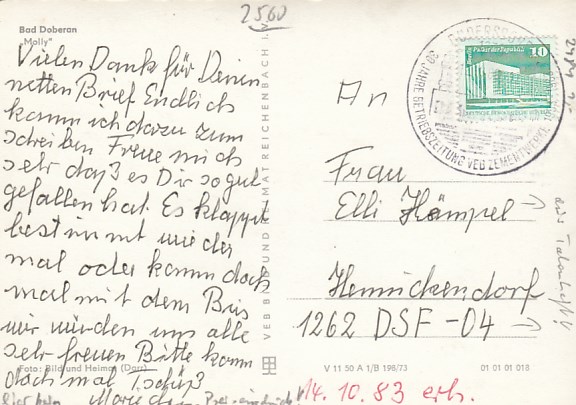 2560
Bad Doberan
„Molly"
Vielen Dank für Deinen
netten Brief Endlich
komm ich dazu zum
schreiben Freue mich
sehr daß es Dir so gut
gefallen hat. Es klappt
bestimmt wieder
mal oder komm doch
mal mit dem Bus
wir würden uns alle
sehr freuen Bitte komm
doch mal Tschüß
Foto: Bild und Heimat (Darr)
VEB BILD UND HEIMAT REICHENBACH i. V.
An
Frau
Elli Hämpel
Hennickendorf
1262 DSF-04
V 11 50 A 1/B 196/73
01 01 01 018
14.10.83 erh.
Palast der Republik 10
30 JAHRE BETRIEBSZEITUNG VEB ZEMENTWERKE